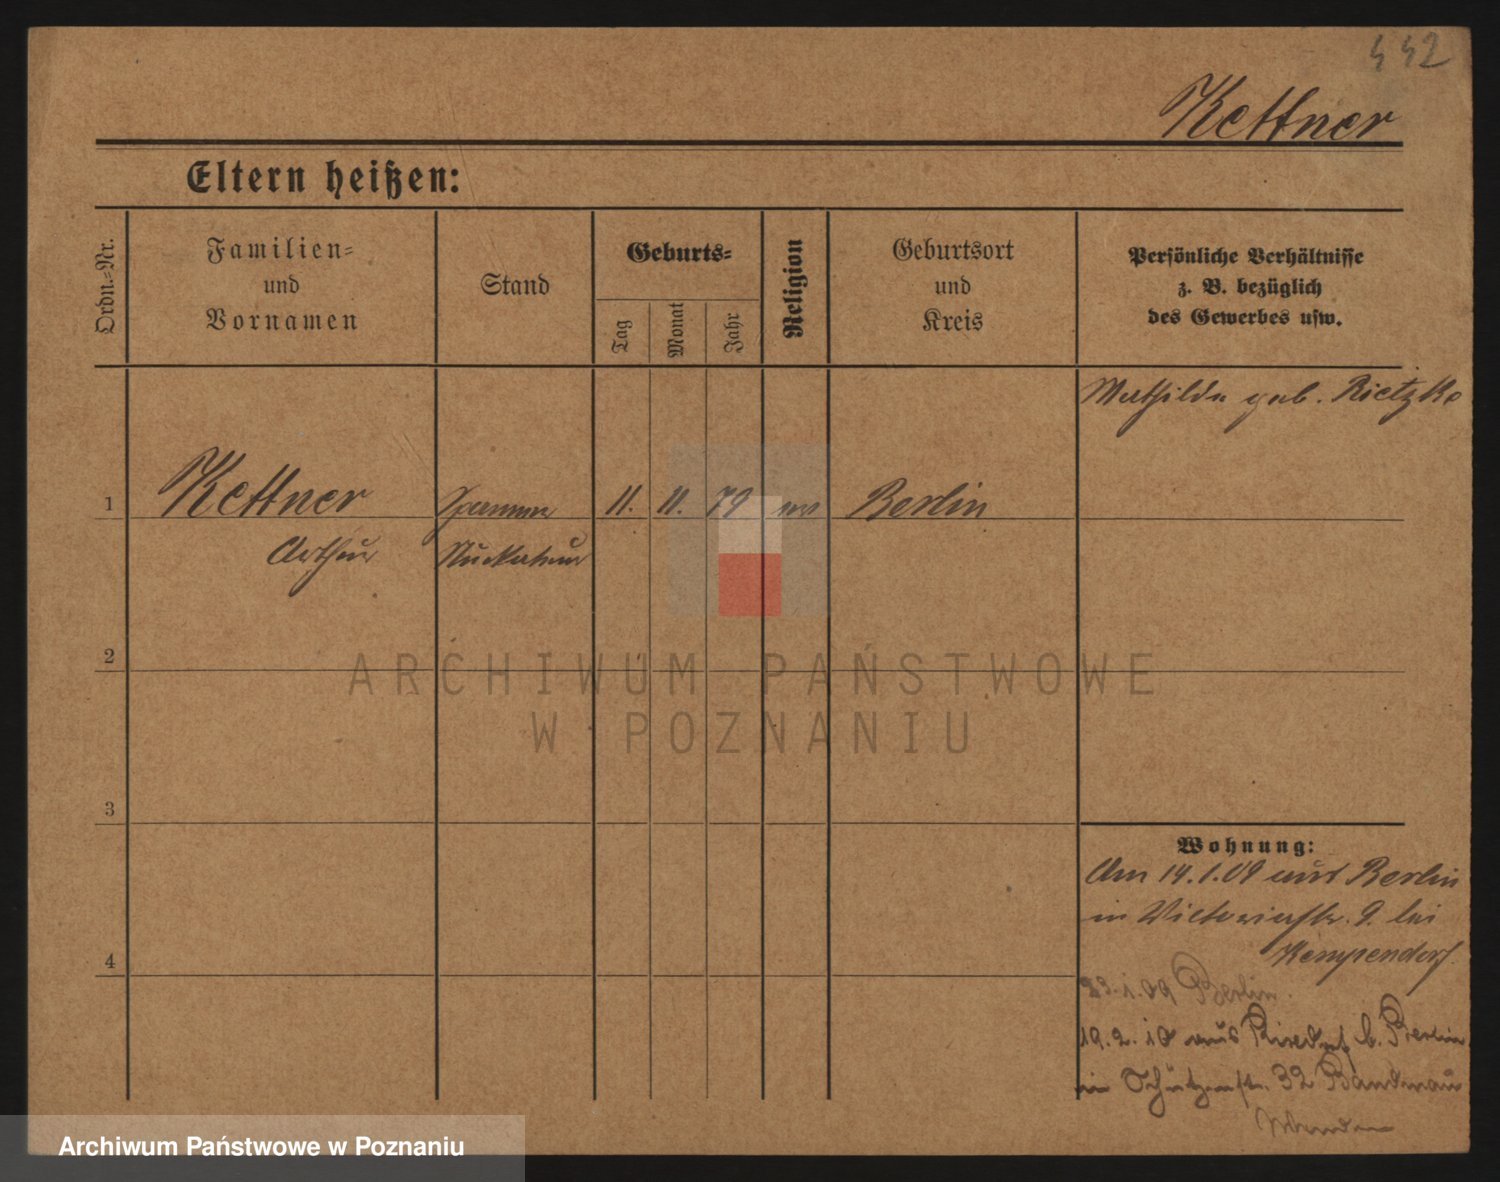 442
Kettner
Eltern heißen:
Ordn.-Nr.
Familien-
und
Vornamen
Stand
Geburts-
Tag
Monat
Jahr
Religion
Geburtsort
und
Kreis
Persönliche Verhältnisse
z. B. bezüglich
des Gewerbes usw.
Mathilde geb. Rietzke
1
Kettner
11.
11.
79
ev
Berlin
Arthur
Stuckateur
2
ARCHIWUM PAŃSTWOWE
W POZNANIU
3
Wohnung:
Am 14.1.09 aus Berlin
in Victoriastr. 9. bei
Kempendorf.
4
23.1.09 Berlin.
19.2.10 aus b. Berlin
in Schützenstr. 32
Archiwum Państwowe w Poznaniu